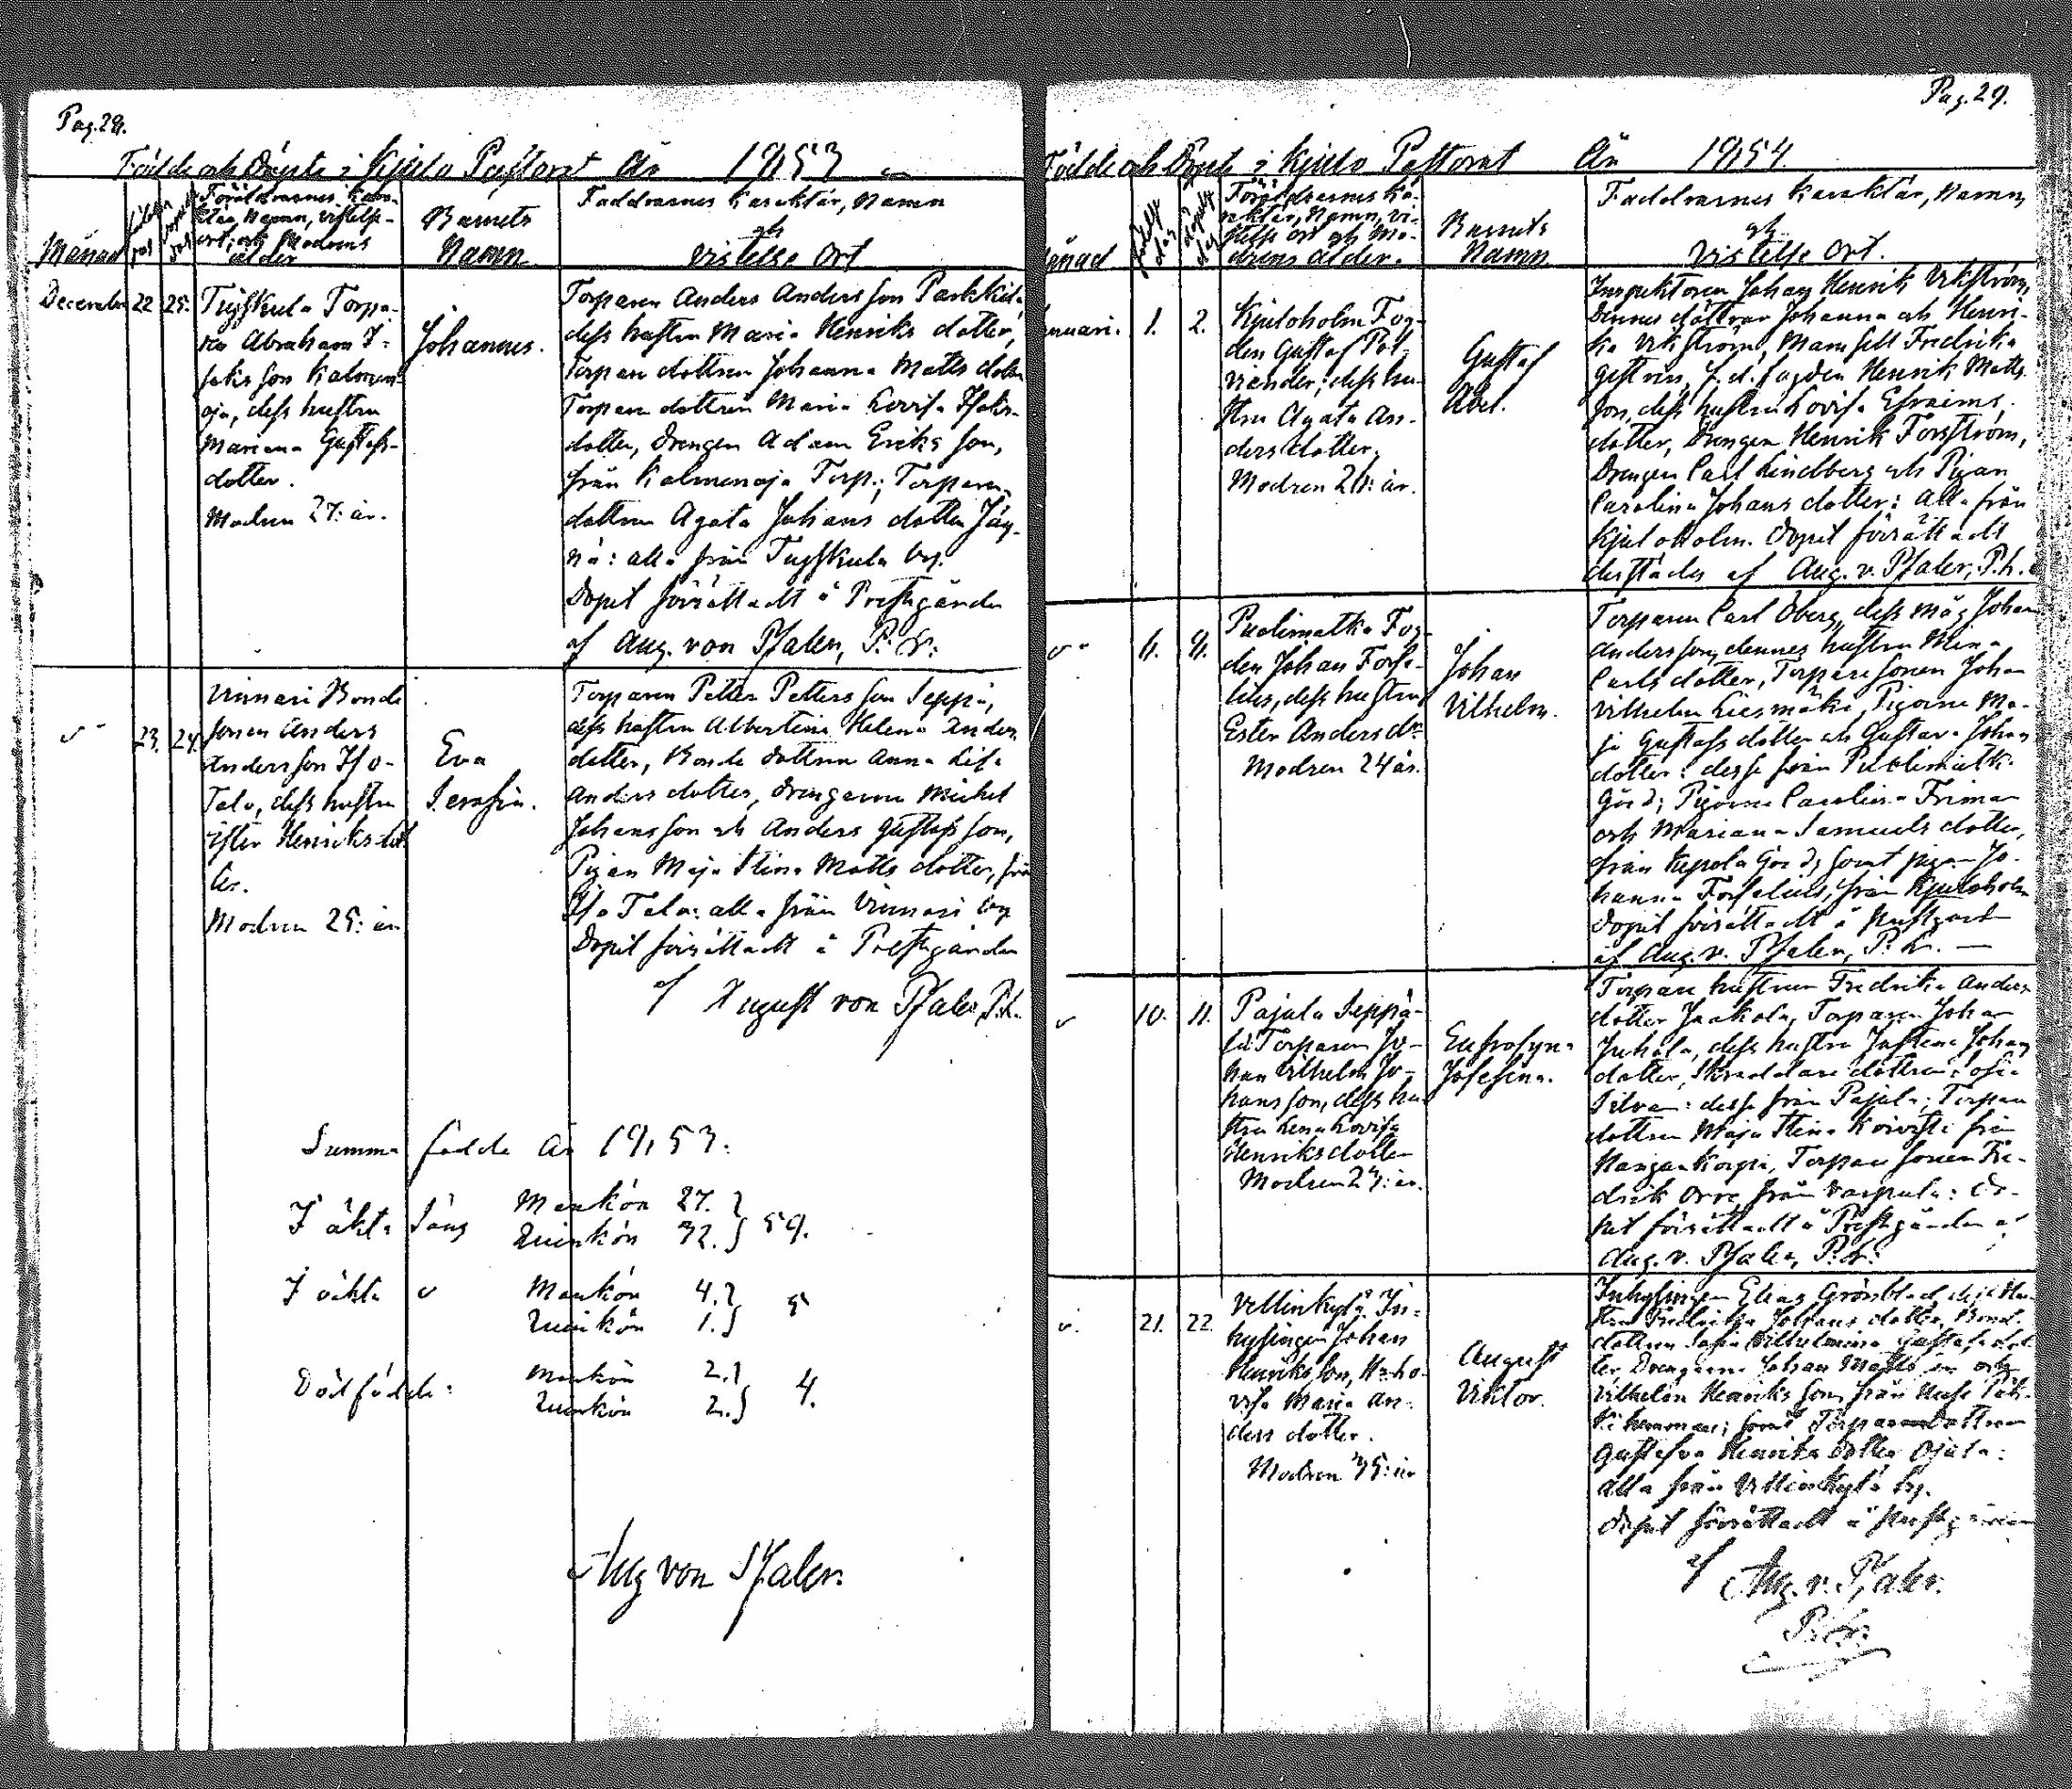 Pag. 28.
Födde och Döpte i Kjulo Pastorat År 1853
Månad
Föräldrarnes Karak-
ter, Namn, vistelse-
ort, och Modrens
ålder
Barnets
Namn
Faddrarnes Karaktär, Namn
och
vistelse Ort
December 22 25.
Tuiskula Torpa-
ren Abraham I-
saksson Kalmen-
oja, dess hustru
Mariana Gustafs-
dotter.
Modren 27: år.
Johannes.
Torparen Anders Andersson
dess hustru Maria Henriks dotter,
Torpare dottren Johanna Matts dotter
Torpare dottren Maria Lovisa Isaks-
dotter, Drengen Adam Eriks son,
från Kalmenoja Torp; Torpare-
dottren Agata Johans dotter
alla från Tuiskula by.
Dopet förrättadt å Prestgården
af Aug. von Pfaler, P. L.
23. 24.
Vinnari Bonde
sonen Anders
Andersson Iso-
Talo, dess hustru
Ester Henriks dot-
ter.
Modren 25: år
Eva
Serafia.
Torparen Petter Petters son Seppä,
dess hustru Albertina Helena Anders
dotter, Bonde dottren Anna Lisa
Anders dotter, Drengarne Michel
Johansson och Anders Gustafsson,
Pigan Maja Stina Matts dotter, från
Iso Talo: alla från Vinnari by
Dopet förrättadt å Prestgården
af August von Pfaler P. L.
Summa födde År 1853:
I äkta Säng Mankön 27. } 59.
Quinkön 32.
I oäkta Mankön 4. } 5
Quinkön 1.
Dödfödde: Mankön 2. } 4.
Quinkön 2.
Aug von Pfaler.
Pag. 29.
Födde och Döpte i Kjulo Pastorat År 1854
Månad
Föräldrarnes Ka-
raktär, Namn, vi-
stelse ort och Mo-
drens ålder.
Barnets
Namn
Faddrarnes Karaktär, Namn
och
Vistelse Ort.
Januari. 1. 2.
Kjuloholm Fog-
den Gustaf Pol-
viander, dess hu-
stru Agata An-
ders dotter.
Modren 28: år.
Gustaf
Abel.
Inspektoren Johan Henrik Vikström,
Dennes döttrar Johanna och Henri-
ka Vikström, Mamsell Fredrika
f.d. fogden Henrik Matts
son, dess hustru Lovisa Efraims
dotter, Drengen Henrik Forsström,
Drengen Carl Lindberg och Pigan
Carolina Johans dotter: alla från
Kjuloholm. Dopet förrättadt
derstädes af Aug. v. Pfaler, P. L.
Puolimatka Fog-
den Johan Forse-
lius, dess hustru
Ester Anders dr
Modren 24 år.
Johan
Vilhelm.
Torparen Carl Öberg, dess måg Johan
Andersson, dennes hustru Mina
Carls dotter, Torpare sonen Johan
Vilhelm Liesmäki, Pigorna Ma-
ja Gustafs dotter och Gustava Johans
dotter: desse från Puolimatka
Gård; Pigorna Carolina Friman
och Mariana Samuels dotter,
från Kepola Gård; samt pigan Jo-
hanna Forselius, från Kjuloholm
Dopet förrättadt å Prestgård
af Aug. v. Pfaler, P. L.
10. 11.
Pajula Seppä-
lä Torparen Jo-
han Vilhelm Jo-
hansson, dess hu-
stru Lena Lovisa
Henriksdotter
Modren 23: år.
Eufrosyna
Josefina.
Torpare hustrun Fredrika Anders
dotter Jaakola, Torparen Johan
Juhola, dess hustru Justina Johans
dotter, Skräddare dottren
desse från Pajula; Torpare
dottren Maja Stina Koivisto från
Torpare sonen Fre-
drik Orre från Do-
pet förrättadt å Prestgården af
Aug. v. Pfaler, P. L.
21. 22.
Vellinkylä In-
hysingen Johan
Henriksson, H: Lo-
visa Maria An-
ders dotter.
Modren 35: år
August
Viktor.
Inhysingen Elias Grönblad, dess Hu-
stru Fredrika Johans dotter, Bond-
dottren Sofia Vilhelmina Gustafs dot-
ter, Drengarne Johan Mattsson och
Vilhelm Henriks son, från
samt Torpare dottren
Gustafva Henriks dotter Ojala:
alla från Vellinkylä by.
Dopet förrättadt å Prestgården
af Aug. v. Pfaler.
P. L.